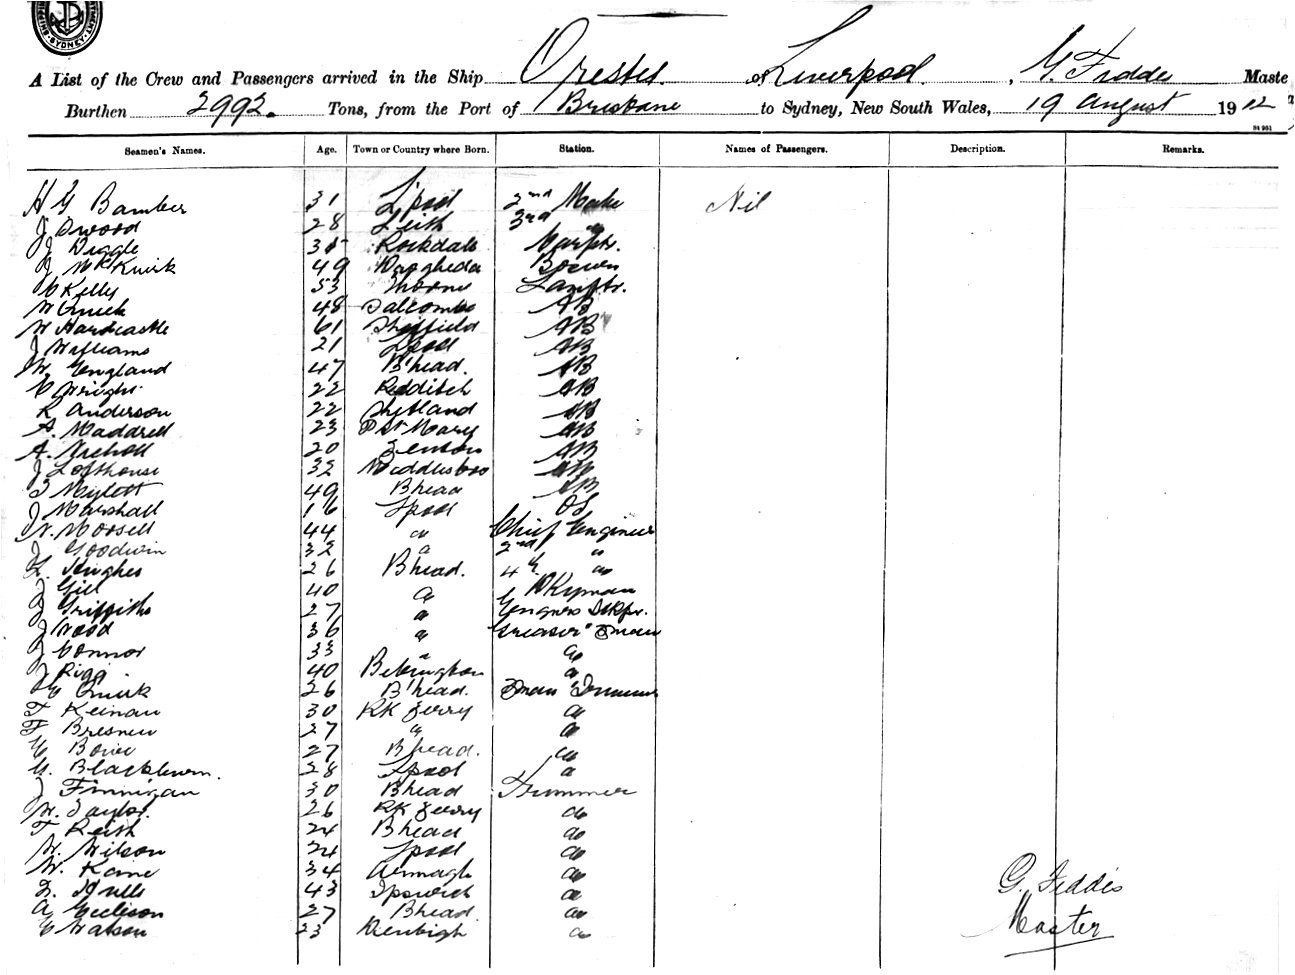 SYDNEY
A List of the Crew and Passengers arrived in the Ship Orestes of Liverpool, G. Feddis Maste
Burthen 2992 Tons, from the Port of Brisbane to Sydney, New South Wales, 19 August 1912
St 961
Seamen's Names. Age. Town or Country where Born. Station. Names of Passengers. Description. Remarks.
H G Bamber 31 L'pool 2nd Mate Nil
J Dwood 28 Leith 3rd "
J Diggle 35 Rockdale Carptr.
J McKuirk 49 Drogheda Bosun
C Kelly 53 Thorne Lamptr.
W Quick 48 Balcombe AB
W Hardcastle 61 Sheffield AB
J Williams 21 Lpool AB
W. England 47 B'head. AB
C Wright 22 Redditch AB
R Anderson 22 Shetland AB
A. Maddrell 23 P St Mary AB
A. Nicholl 20 AB
J Lofthouse 32 Middlesboro AB
T Mylott 49 Bhead AB
J Marshall 16 Lpool OS
W. Morsell 44 " Chief Engineer
J Goodwin 32 " 2nd "
L. Hughes 26 Bhead. 4th "
J Gill 40 " Dkyman
J Griffiths 27 " Engnrs Stkpr.
J Wood 36 " Greaser Fman
J Connor 33 " "
J Rigg 40 Bebington "
E Quirk 26 B'head. Fman Trimmer
T Keinan 30 RK Ferry "
T Bresnen 27 " "
E Bower 27 Bhead. "
G. Blackburn. 28 Lpool "
J Finnigan 30 Bhead Trimmer
W. Taylor. 26 RK Ferry "
T Keith 24 Bhead "
W. Wilson 24 Lpool "
W. Kane 34 Armagh "
L. Hulls 43 Ipswich "
A Eccleson 27 Bhead. "
E Watson 23 Denbigh "
G. Feddis
Master